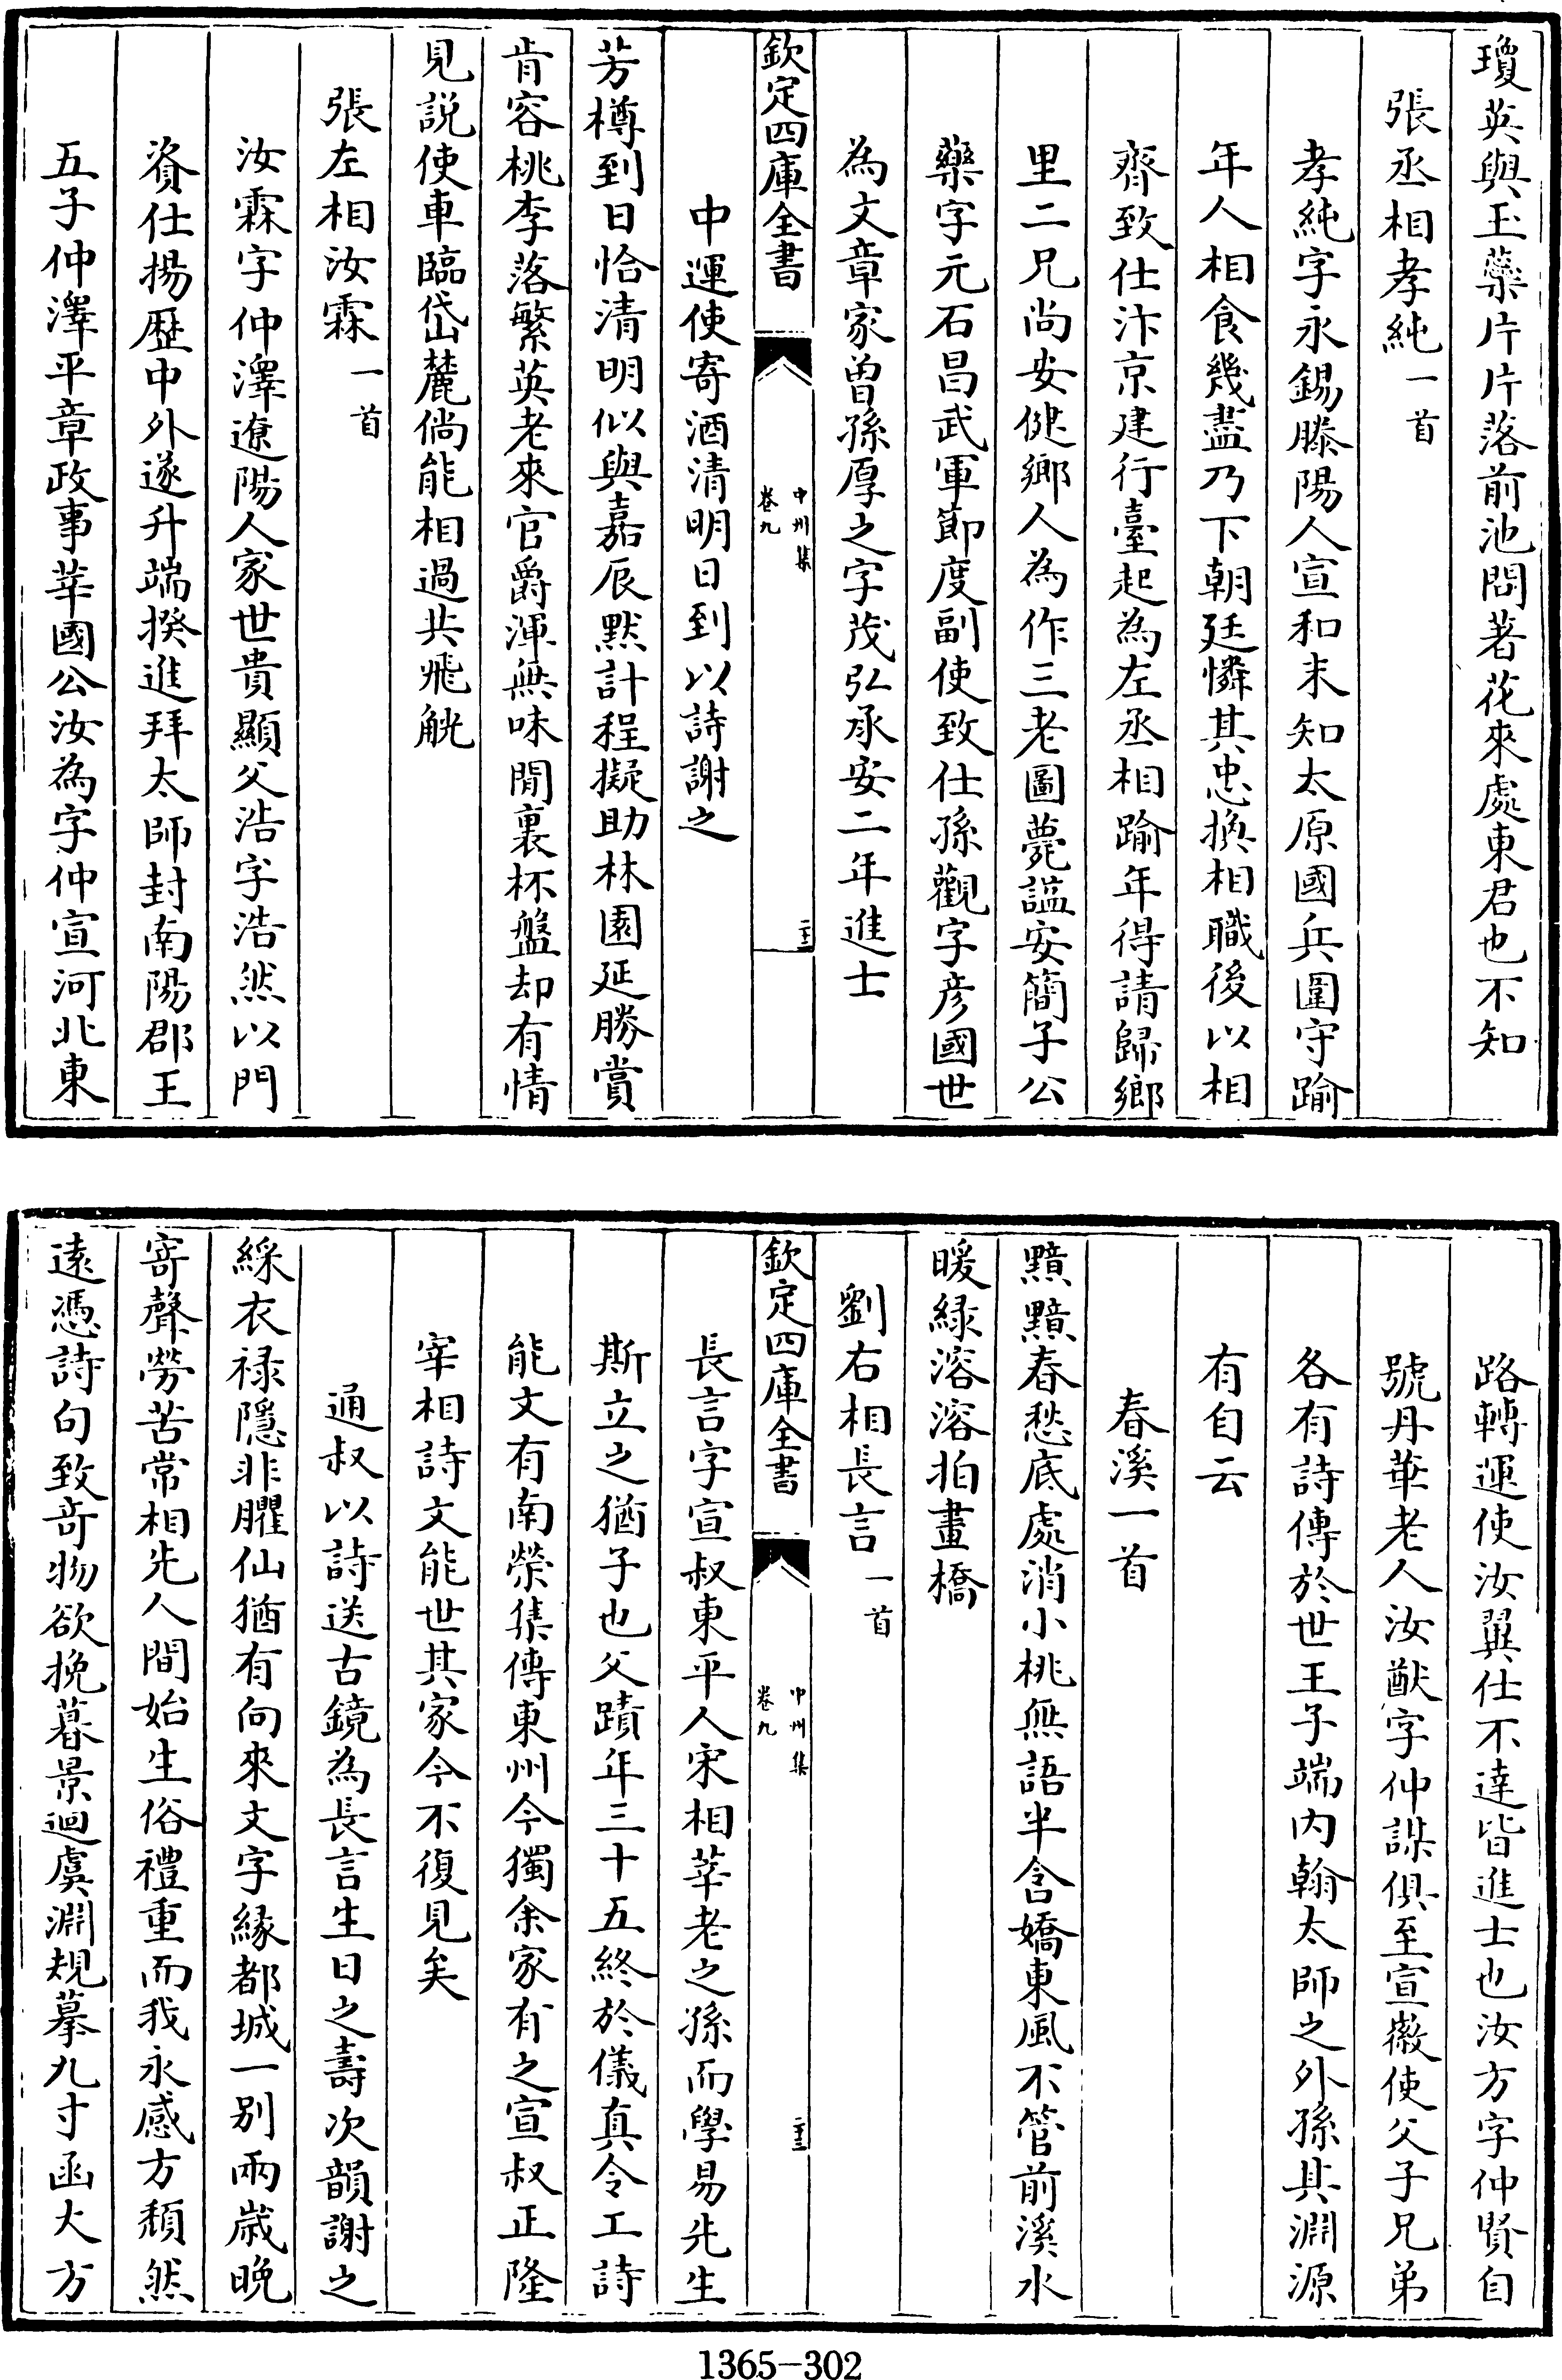 瓊英與玉蘂片片落前池問著花來處東君也不知
張丞相孝純一首
孝純字永錫滕陽人宣和末知太原國兵圍守踰
年人相食幾盡乃下朝廷憐其忠換相職後以相
齊致仕汴京建行臺起為左丞相踰年得請歸鄉
里二兄尚安健鄉人為作三老圖薨謚安簡子公
藥字元石昌武軍節度副使致仕孫觀字彦國世
為文章家曾孫厚之字茂弘承安二年進士
欽定四庫全書
中州集
卷九
中運使寄酒清明日到以詩謝之
芳樽到日恰清明似與嘉辰黙計程擬助林園延勝賞
肯容桃李落繁英老來官爵渾無味閒裏杯盤却有情
見説使車臨岱麓倘能相過共飛觥
張左相汝霖一首
汝霖字仲澤遼陽人家世貴顯父浩字浩然以門
資仕揚歴中外遂升端揆進拜太師封南陽郡王
五子仲澤平章政事莘國公汝為字仲宣河北東
路轉運使汝翼仕不達皆進士也汝方字仲賢自
號丹華老人汝猷字仲謀俱至宣徽使父子兄弟
各有詩傳於世王子端内翰太師之外孫其淵源
有自云
春溪一首
黯黯春愁底處消小桃無語半含嬌東風不管前溪水
暖緑溶溶拍畫橋
劉右相長言一首
欽定四庫全書
中州集
卷九
長言字宣叔東平人宋相莘老之孫而學易先生
斯立之猶子也父蹟年三十五終於儀真令工詩
能文有南榮集傳東州今獨余家有之宣叔正隆
宰相詩文能世其家今不復見矣
通叔以詩送古鏡為長言生日之壽次韻謝之
綵衣禄隱非臞仙猶有向來文字縁都城一别兩歳晩
寄聲勞苦常相先人間始生俗禮重而我永感方頽然
遠憑詩句致竒物欲挽暮景迴虞淵規摹九寸函大方
1365-302